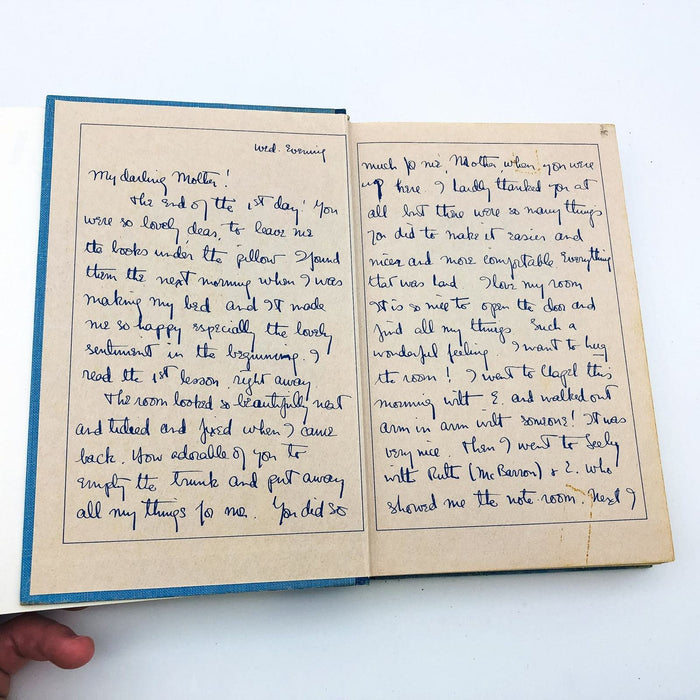 Wed. Evening
My darling Mother!
The end of the 1st day! You
were so lovely, dear, to leave me
the books under the pillow. I found
them the next morning when I was
making my bed and It made
me so happy especially the lovely
sentiment in the beginning. I
read the 1st lesson right away
The room looked so beautifully neat
and tidied and fixed when I came
back. How adorable of you to
empty the trunk and put away
all my things for me. You did so
much for me, Mother, when you were
up here. I hardly thanked you at
all but there were so many things
you did to make it easier and
nicer and more comfortable. Everything
that was hard. I love my room
It is so nice to open the door and
find all my things. Such a
wonderful feeling. I want to hug
the room! I went to Chapel this
morning with E. and walked out
arm in arm with someone! It was
very nice. Then I went to Seeley
with Ruth (McBarron) & E. who
showed me the note room. Next I